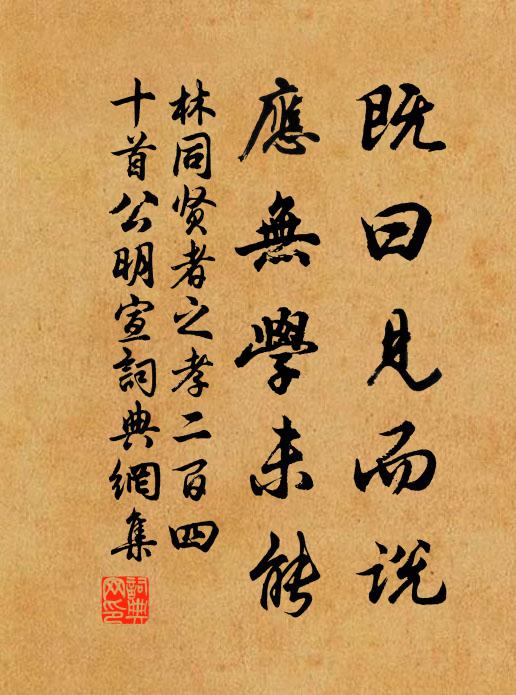 既曰見而説
應無學未能
林同贤者之孝二百四
十首公明宣詞典網集
詞典网印